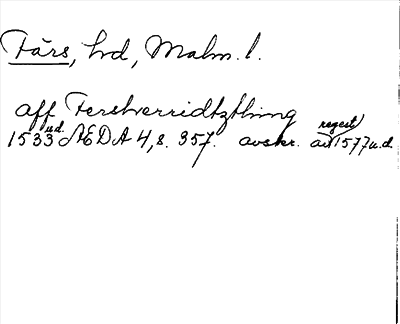 Färs, hd, Malm. l.
aff Fersherridtzthing
1533 u.d. ÆDA 4, s. 357. avskr. av regest 1577 u.d.